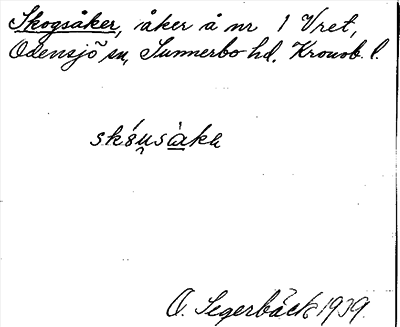 Skogsåker, åker å nr 1 Vret,
Odensjö sn, Sunnerbo hd, Kronob. l.
O. Segerbäck 1939.